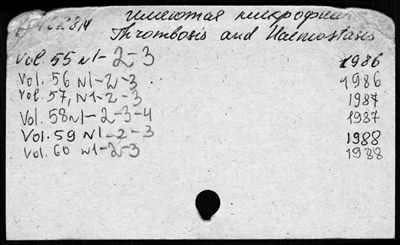 имеются микрофиши
Thrombosis and Haemostasis
Vol 55 N1-2-3 1986
Vol. 56 N1-2-3 1986
Vol. 57, N1-2-3 1987
Vol. 58 N1-2-3-4 1987
Vol. 59 N1-2-3 1988
Vol. 60 N1-2-3 1988